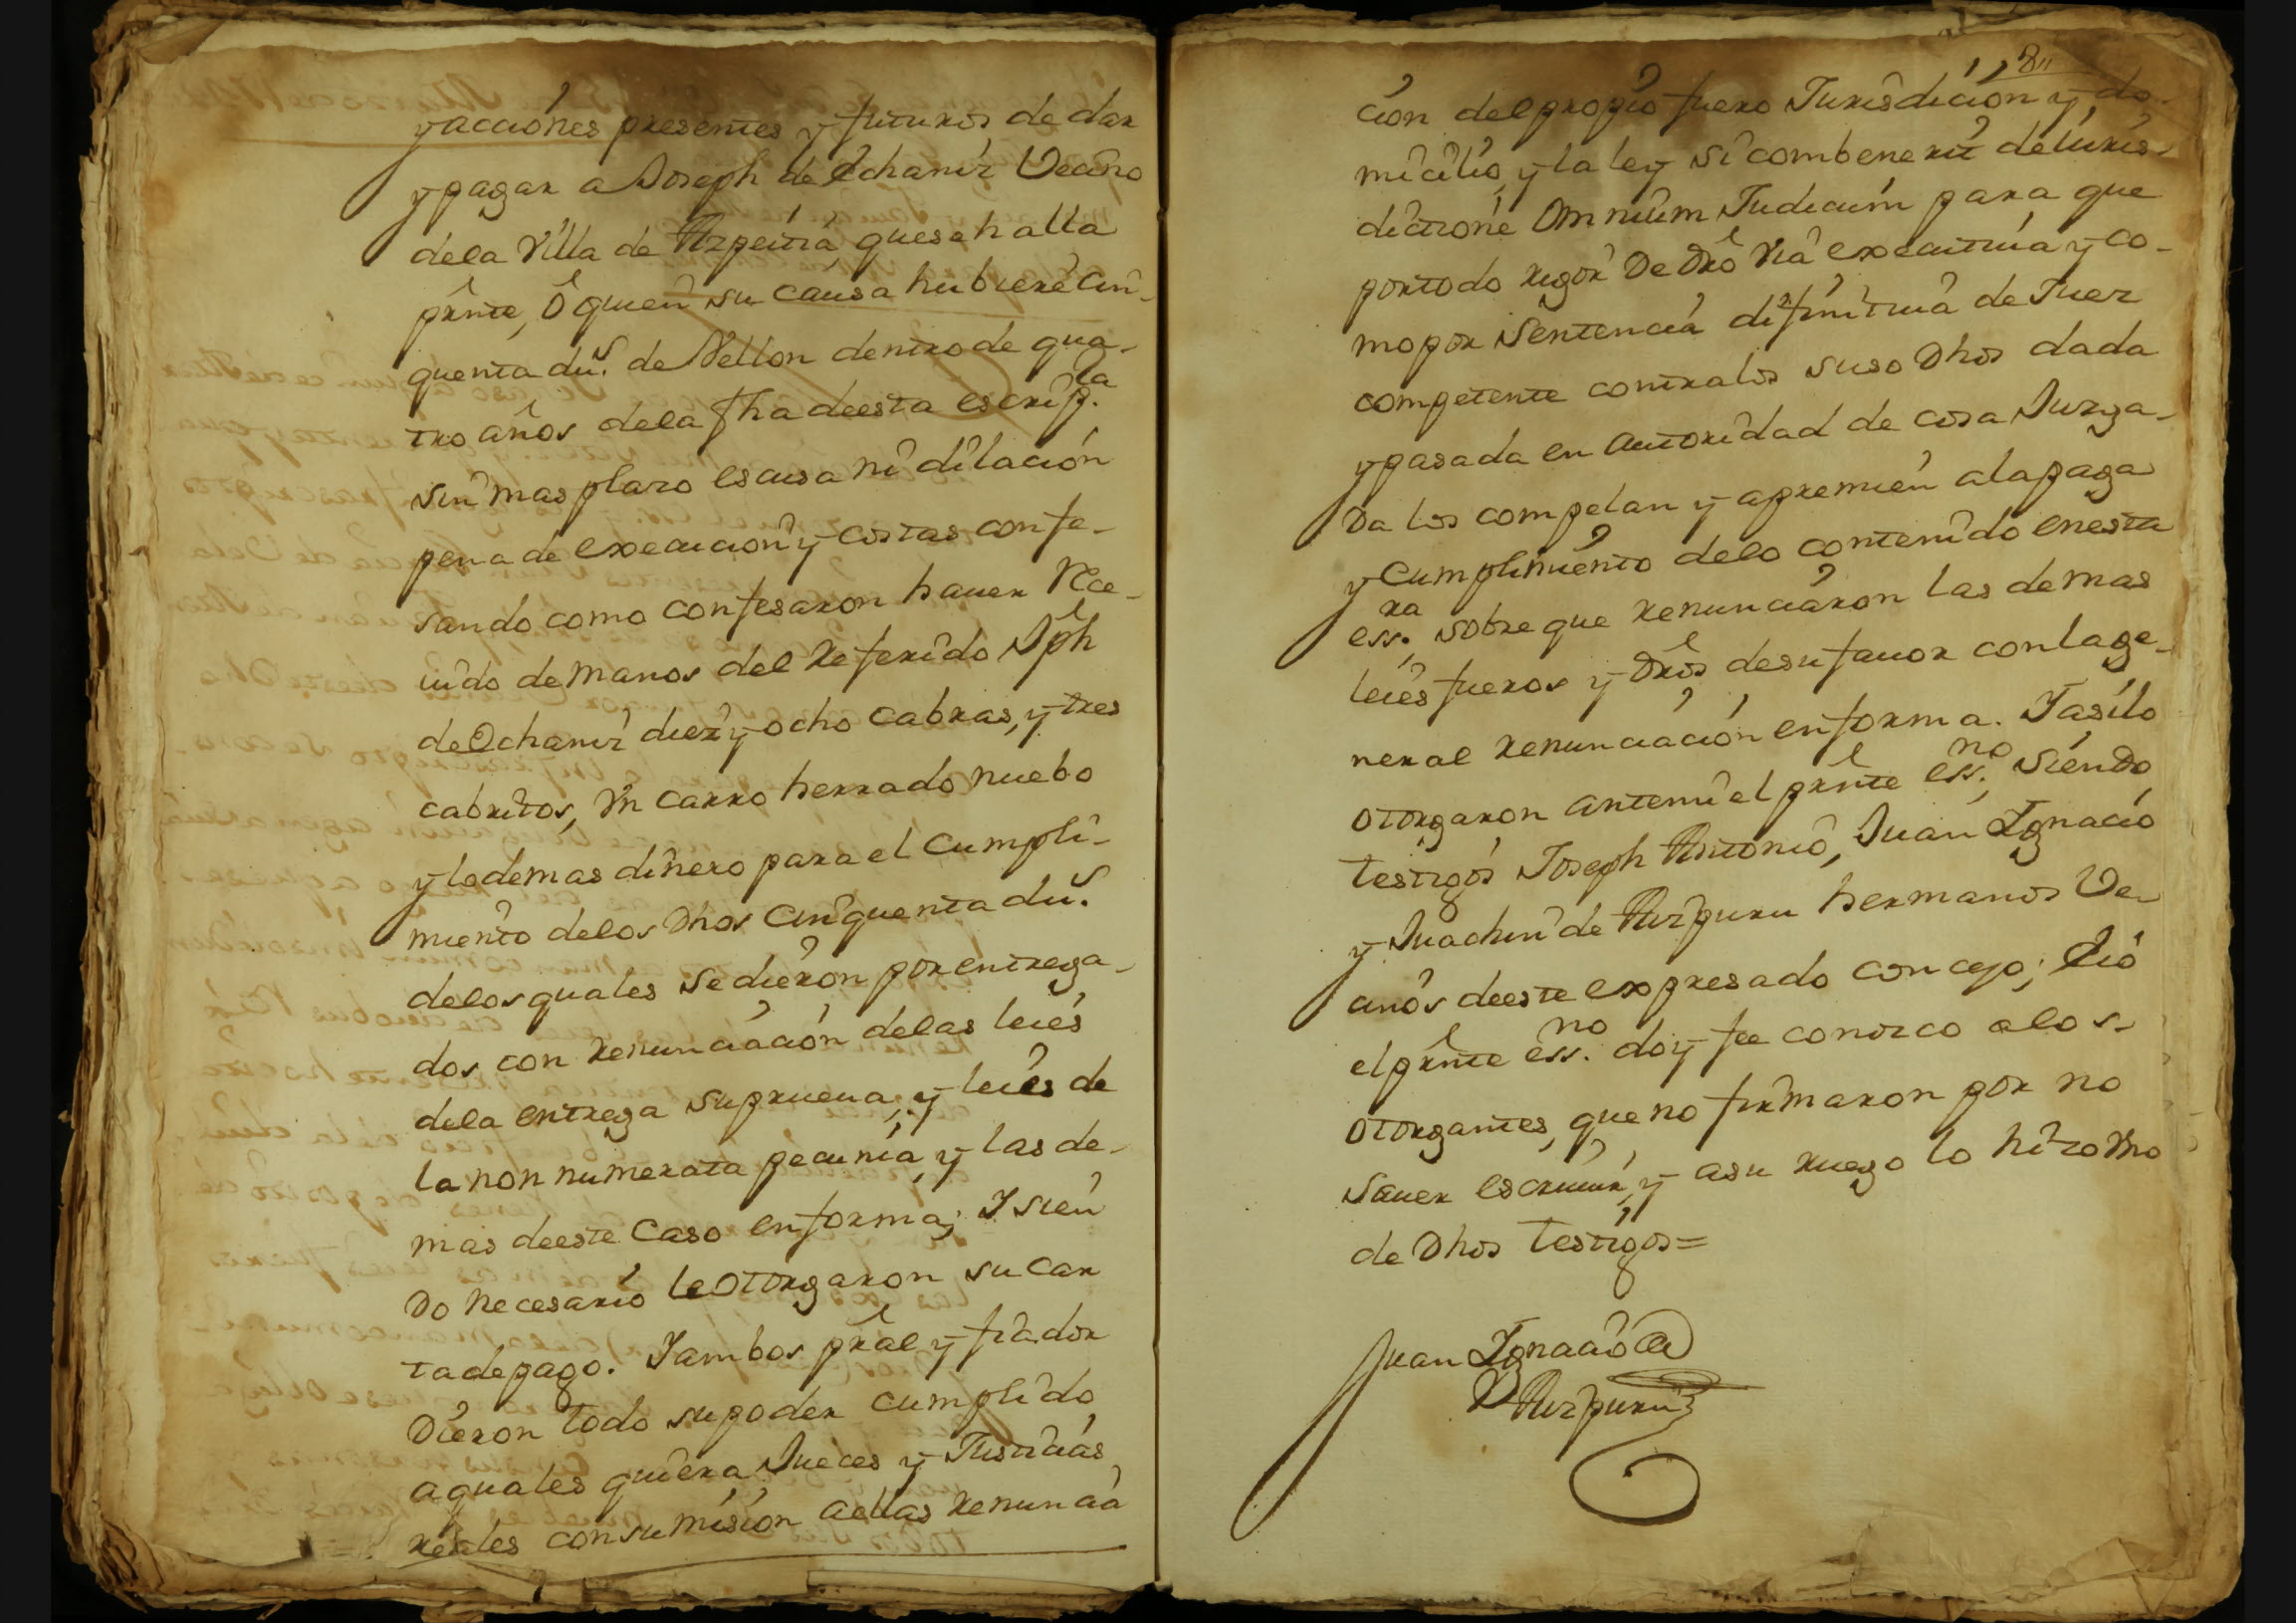 y acciónes presentes y futuros de dar
y pagar a Joseph de Echaniz Vecino
dela Villa de Azpeitia, quese halla
prnte, ô quien su causa hubiere cin-
quenta dus. de Vellon dentro de qua-
tro años dela fha deesta escripra.
sin mas plazo escusa ni dilación
pena de execución y costas confe-
sando como confesaron hauer rece-
iudo de manos del referido Jph
de Echaniz diez y ocho cabras, y tres
cabritos, Vn carro herrado nuebo
y lodemas dinero para el cumpli-
miento delos Dhos cinquenta dus.
delos quales se dieron por entrega-
dos con renunciación delas leies
dela entrega suprueua, y leies de
la non numerata pecunia, y las de-
mas deeste Caso en forma; Y sien
Do necesario le otorgaron su car
ta de pago. Y ambos pral y fiador
Dieron todo su poder cumplido
a quales quiera Jueces y Justicias
reales con sumisión aellas renuncia
118
ción del propio fuero Jurisdición y do-
micilio, y la ley si combenerit de iuris-
dictione Omnium Judicum para que
portodo rigor De Dro Via executiua y co-
mo por Sentencia difinitiua de Juez
competente contralos suso Dhos dada
y pasada en autoridad de cosa Juzga-
Da los compelan y apremien ala paga
y Cumplimiento delo contenido enesta
essra. sobre que renunciaron las demas
leies fueros y Dros desu fauor conla ge-
neral renunciación enforma. Y asilo
otorgaron antemi el prnte essno. siendo
testigos Joseph Antonio, Juan Ignacio
y Juachin de Aizpuru hermanos Ve-
cinos deeste expresado concejo; e Io
el prnte essno. doy fee conozco alos
otorgantes, que no firmaron por no
sauer escriuir, y asu ruego lo hizo Vno
de Dhos testigos=
Juan Ignacio de
Aizpuru